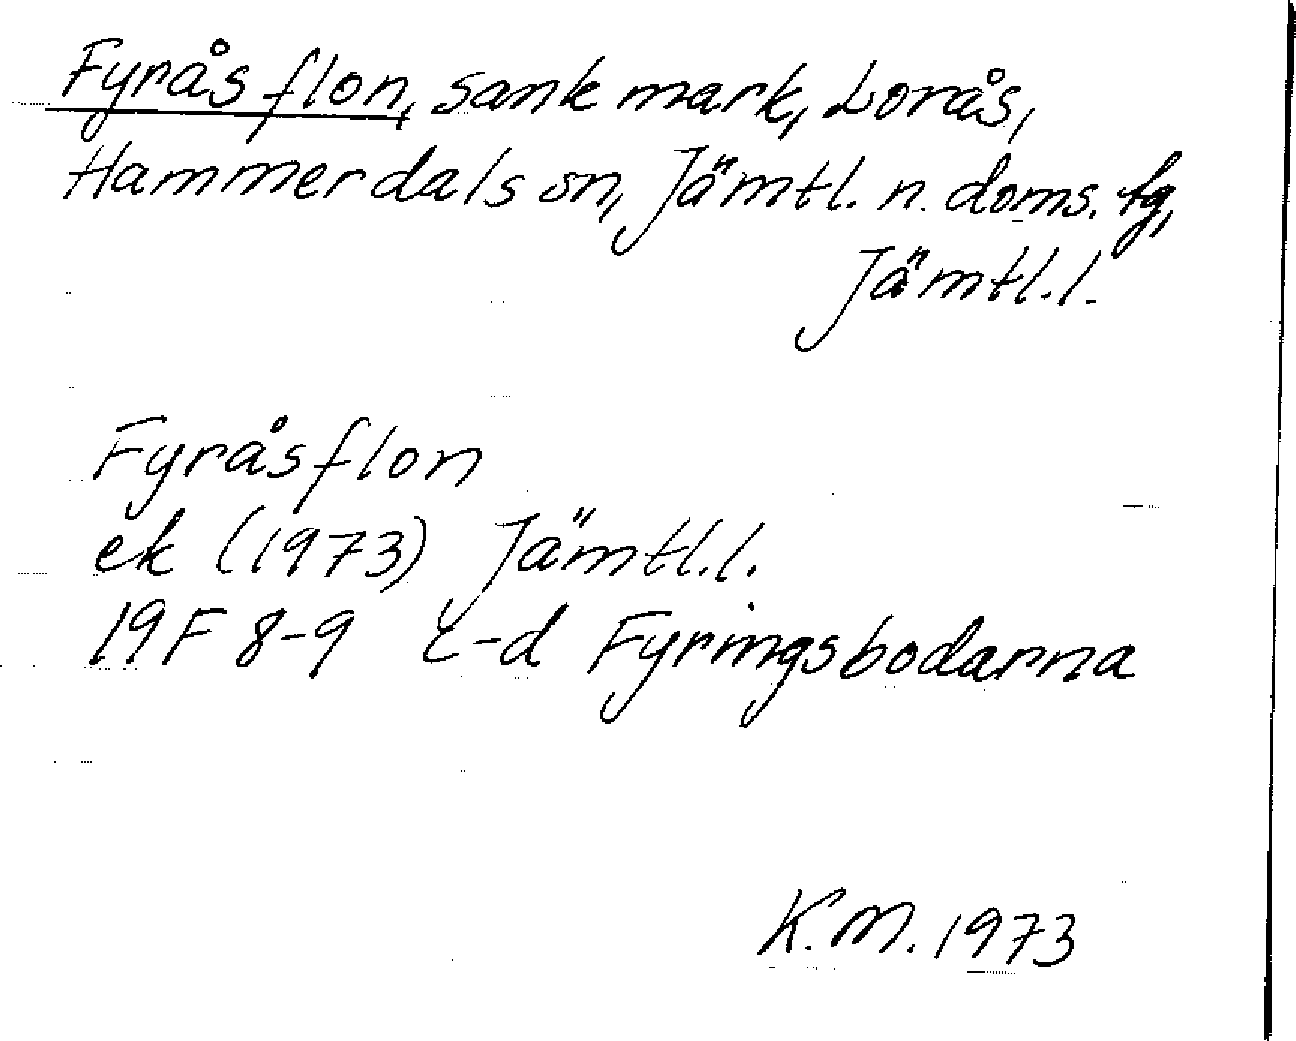 Fyråsflon, sank mark, Lorås,
Hammerdals sn, Jämtl. n. doms. tg,
Jämtl.l.
Fyråsflon
ek (1973) Jämtl.l.
19F 8-9 c-d Fyringsbodarna
K.M. 1973